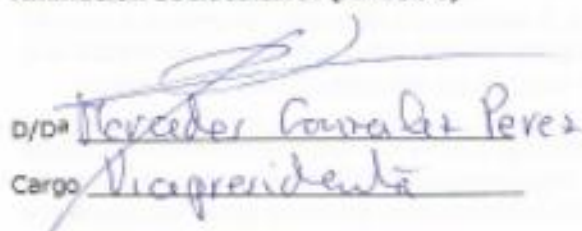 D/Dª Mercedes Gonzalez Perez
Cargo Vicepresidenta